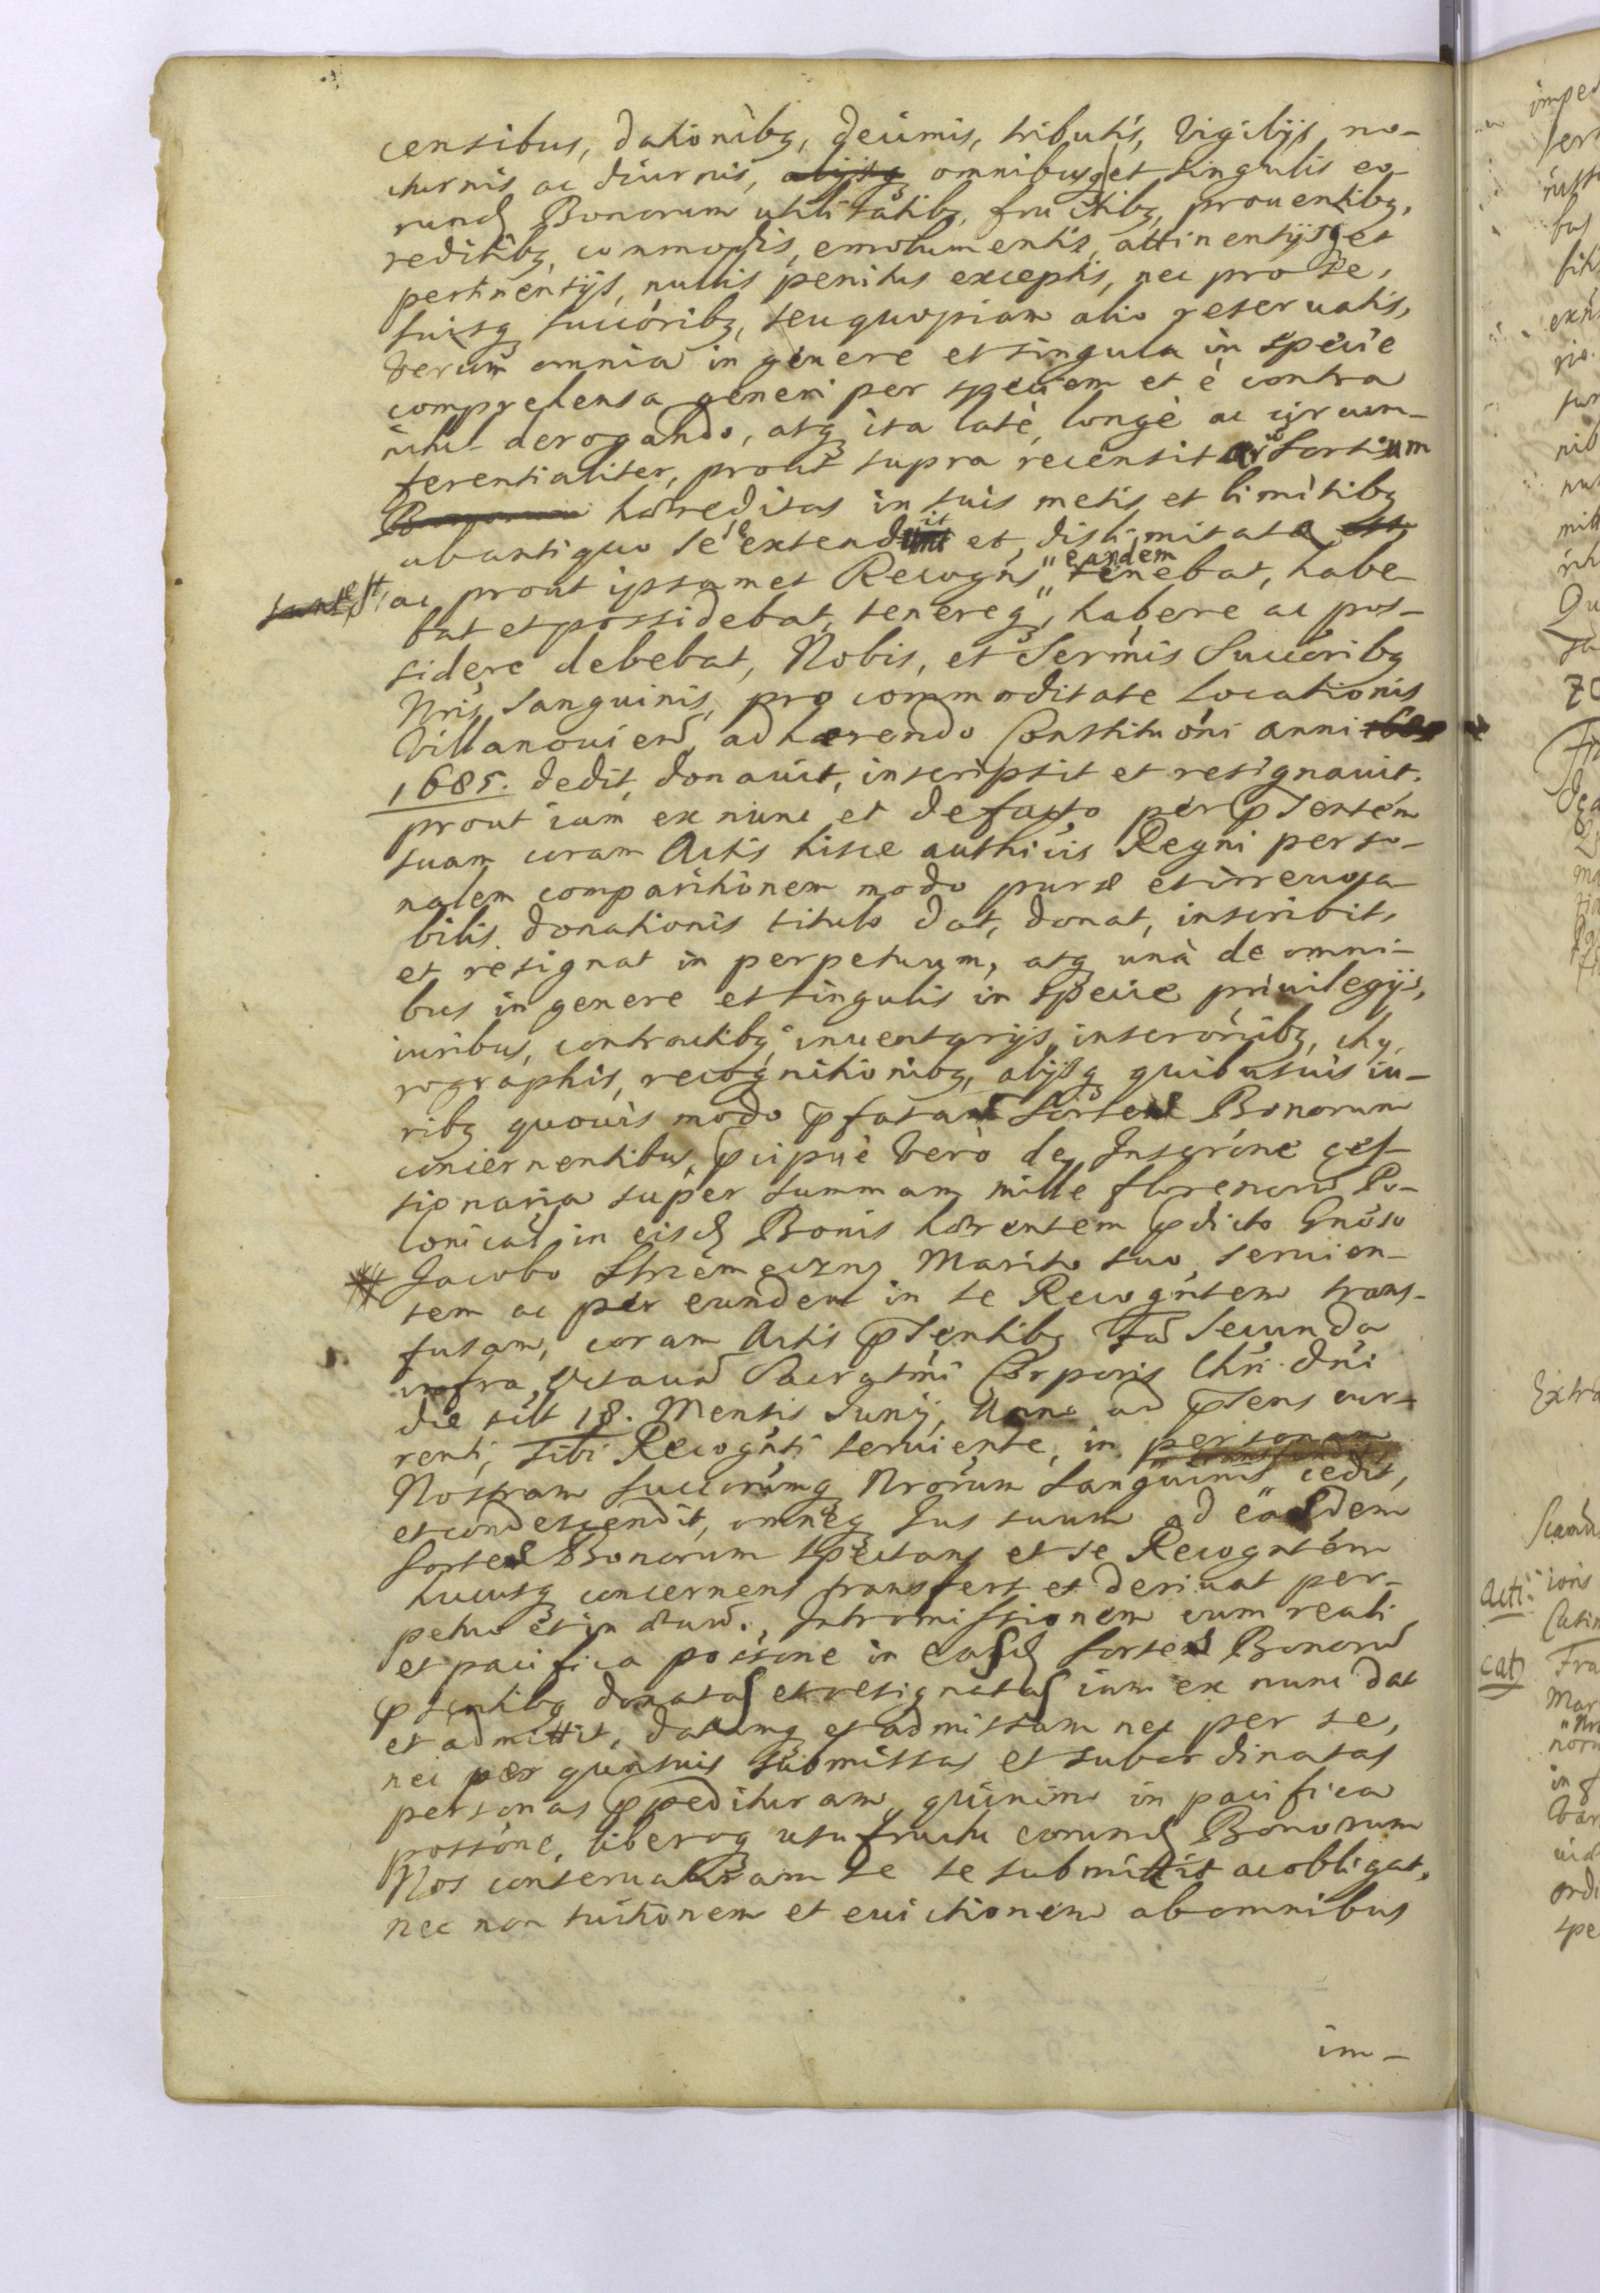 censibus, dationibq, decimis, tributis, vigilijs no-
cturnis ac diurnis, alijsq omnibusq et singulis eo-
rund Bonorum utilitatibq, fructibq, prouentibq,
reditibq, commodis, emolumentis, attinentijsq et
pertinentijs, nullis penitus exceptis, nec pro se,
suisq succoribq, seu quopiam alio reseruatis,
verum omnia in genere et singula in specie
comprehensa generi per speciem et è contra
nihil derogando, atq ita latè, longè ac circum-
ferentialiter, prout supra recensit Sortium
Bonorum hæreditas in suis metis et limitibq
ab antiquo se extendit et dislimitata est
sunt est, ac prout ipsamet Recogns eandem tenebat, habe-
bat et possidebat, tenereq, habere ac pos-
sidere debebat, Nobis, et Sermis Succoribq
Nris Sanguinis, pro commoditate Locationis
Villanouien, adhærendo Constitutioni anni
1685. dedit, donauit, inscripsit et resignauit.
prout iam ex nunc et de facto per psentem
suam coram Actis hisce authicis Regni perso-
nalem comparitionem modo puræ et irreuoca-
bilis donationis titulo dat, donat, inscribit,
et resignat in perpetuum, atq unà de omni-
bus in genere et singulis in specie priuilegijs,
iuribus, contractibq, inuentarijs, inscronibq, chy-
rographis, recognitionibq, alijsq quibusuis iu-
ribq quouis modo pfatas Sortes Bonorum
concernentibus, pcipuè verò de Inscrone ces-
sionaria super summam mille florenorum Po-
lonical in eisd Bonis hærentem pdicto Gnoso
Jacobo Strzemeczny Marito suo seruien-
tem ac per eundem in se Recogntem trans-
fusam, coram Actis psentibq Fa Secunda
infra Octauam Sacratmi Corporis Chri Dni
die silt 18. Mensis Junij, Anno ad psens cur-
renti, sibi Recognti seruiente, in personam
Nostram Succorumq Nrorum Sanguinis cedit,
et condescendit, omneq Jus suum ad easdem
Sortes Bonorum spectans et se Recogntem
hucusq concernens transfert et deriuat per-
petuo et in æuum. Intromissionem cum reali
et pacifica possone in easd Sortes Bonorum
psentibq donatas et resignatas iam ex nunc dat
et admittit, datamq et admissam nec per se,
nec per quasuis submissas et subordinatas
personas ppedituram, quinimo in pacifica
possone, liberoq usufructu eorund Bonorum
Nos conseruaturam se se submittit ac obligat,
nec non tuitionem et euictionem ab omnibus
im-